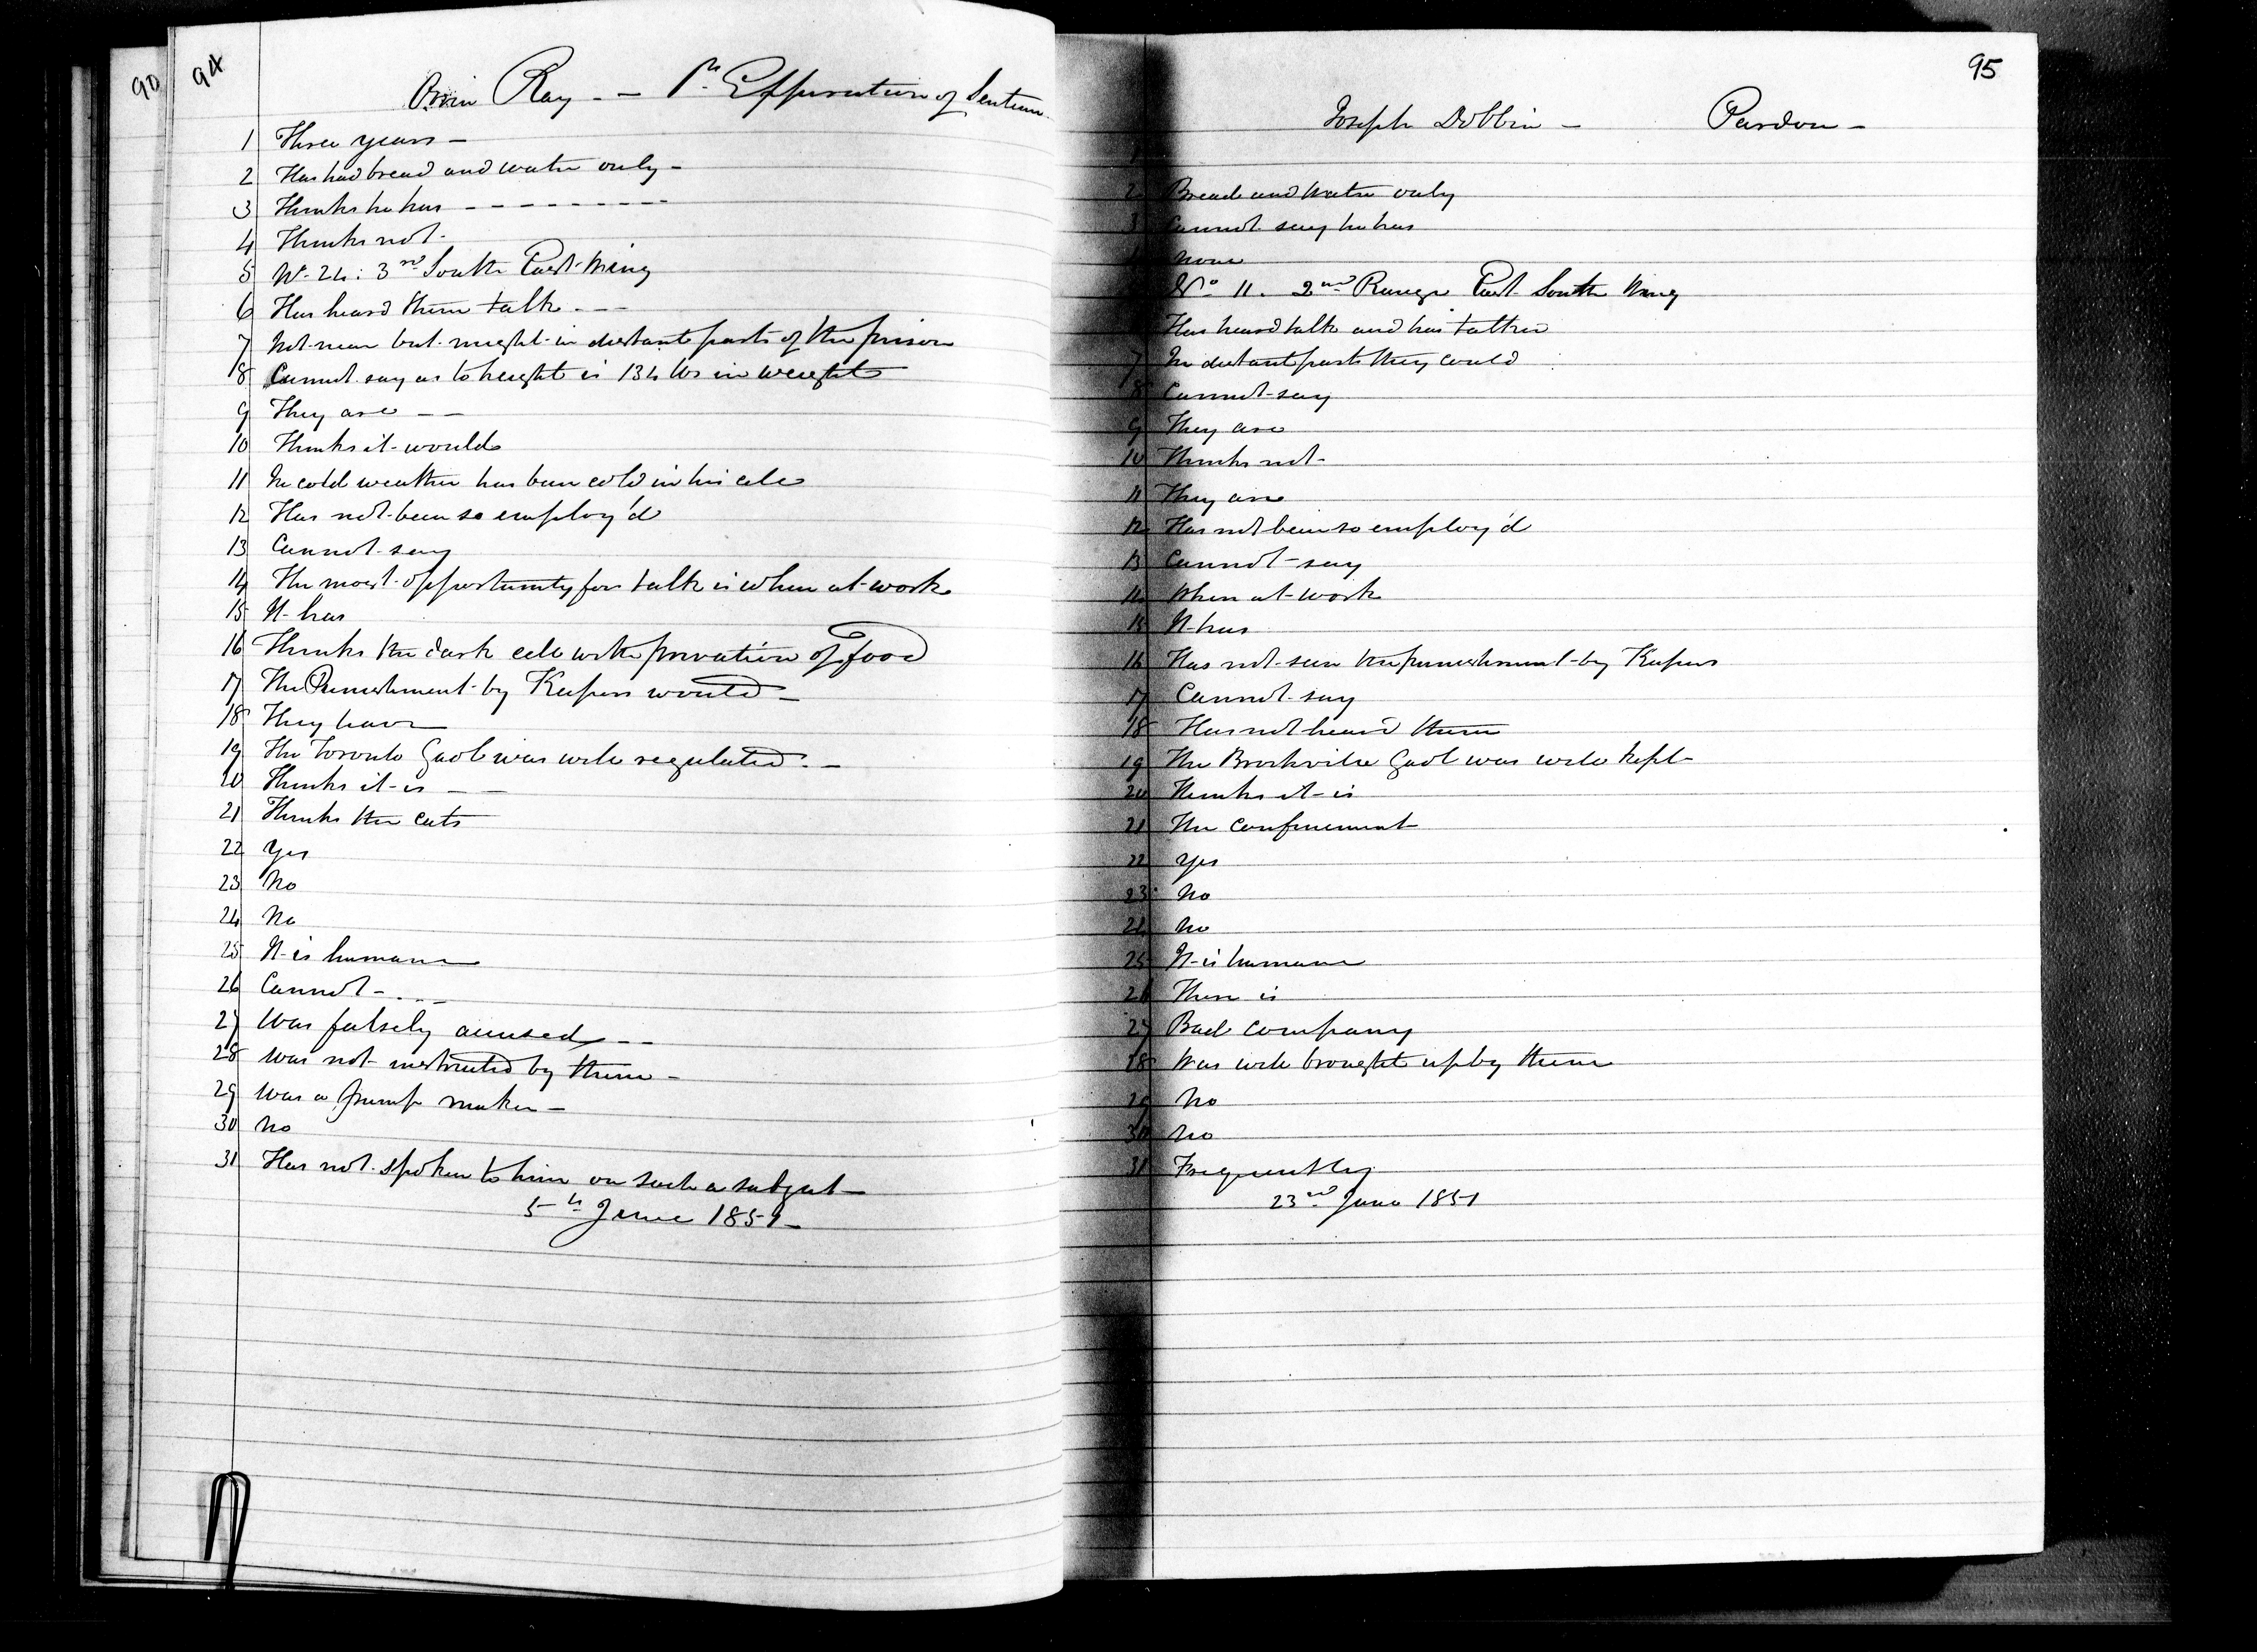 90
94
Orrin Ray - - Pr Expiration of Sentence
1 Three years -
2 Has had bread and water only -
3 Thinks he has - - - - - - - - - -
4 Thinks not -
5 No 24: 3rd South East Wing
6 Has heard them talk - - -
7 Not near but might in distant parts of the prison
8 Cannot say as to height is 134 lbs in weight
9 They are - -
10 Thinks it would
11 In cold weather has been cold in his cell
12 Has not been so employ'd
13 Cannot say
14 The most opportunity for talk is when at work
15 It has
16 Thinks the dark cell with privation of food
17 The Punishment by Keepers would -
18 They have
19 The Toronto Gaol was well regulated. -
20 Thinks it is - -
21 Thinks the cats
22 Yes
23 No
24 No
25 It is humane
26 Cannot - . - -
27 Was falsely accused - -
28 Was not instructed by them -
29 Was a pump maker -
30 No
31 Has not spoken to him on such a subject -
5th June 1851 -
95
Joseph Dobbin - Pardon -
1
2 Bread and water only
3 Cannot say he has
4 None
No 11. 2nd Range East South Wing
Has heard talk and has talked
7 In distant parts they could
8 Cannot say
9 They are
10 Thinks not -
11 They are
12 Has not been so employ'd
13 Cannot - say
14 When at work
15 It has
16 Has not seen the punishment by Keepers
17 Cannot say
18 Has not heard them
19 The Brockville Gaol was well kept -
20 Thinks it is
21 The confinement
22 Yes
23 No
24 No
25 It is humane
26 There is
27 Bad company
28 Was well brought up by them
29 No
30 No
31 Frequently
23rd June 1851